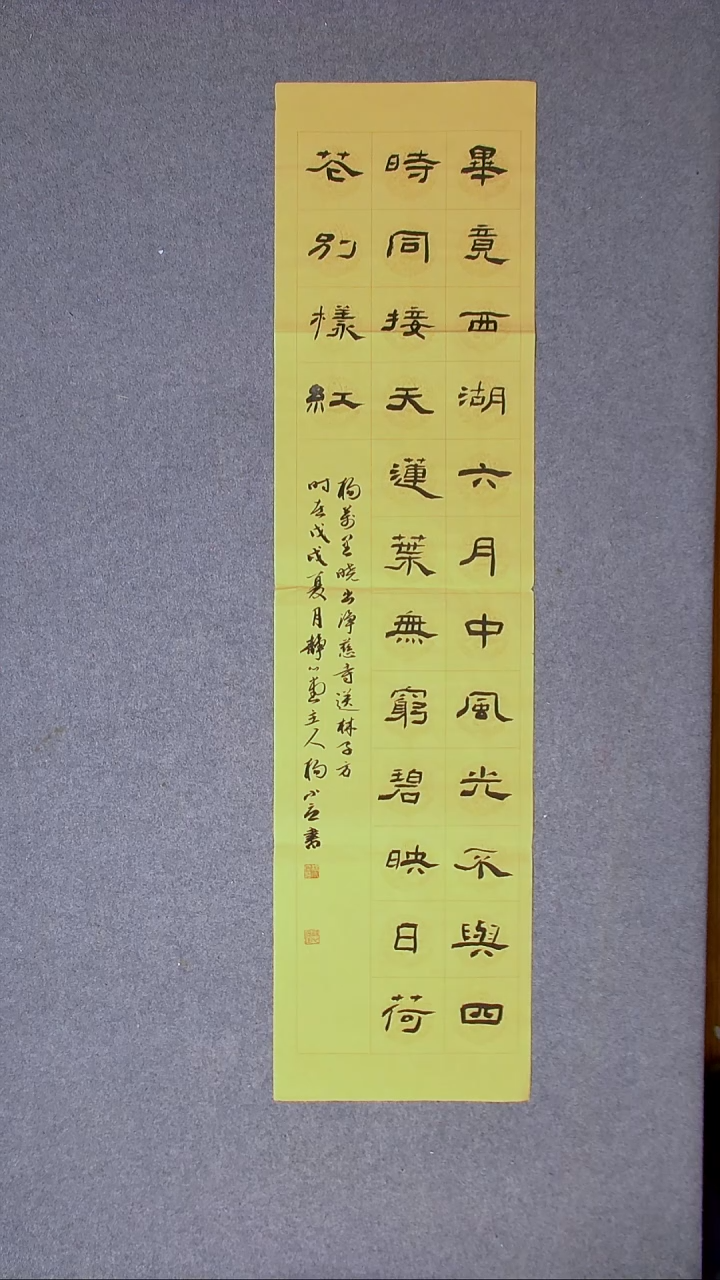 畢竟西湖六月中風光不與四
時同接天蓮葉無窮碧映日荷
花別樣紅
楊萬里曉出净慈寺送林子方
时在戊戌夏月静心齋主人楊小言書